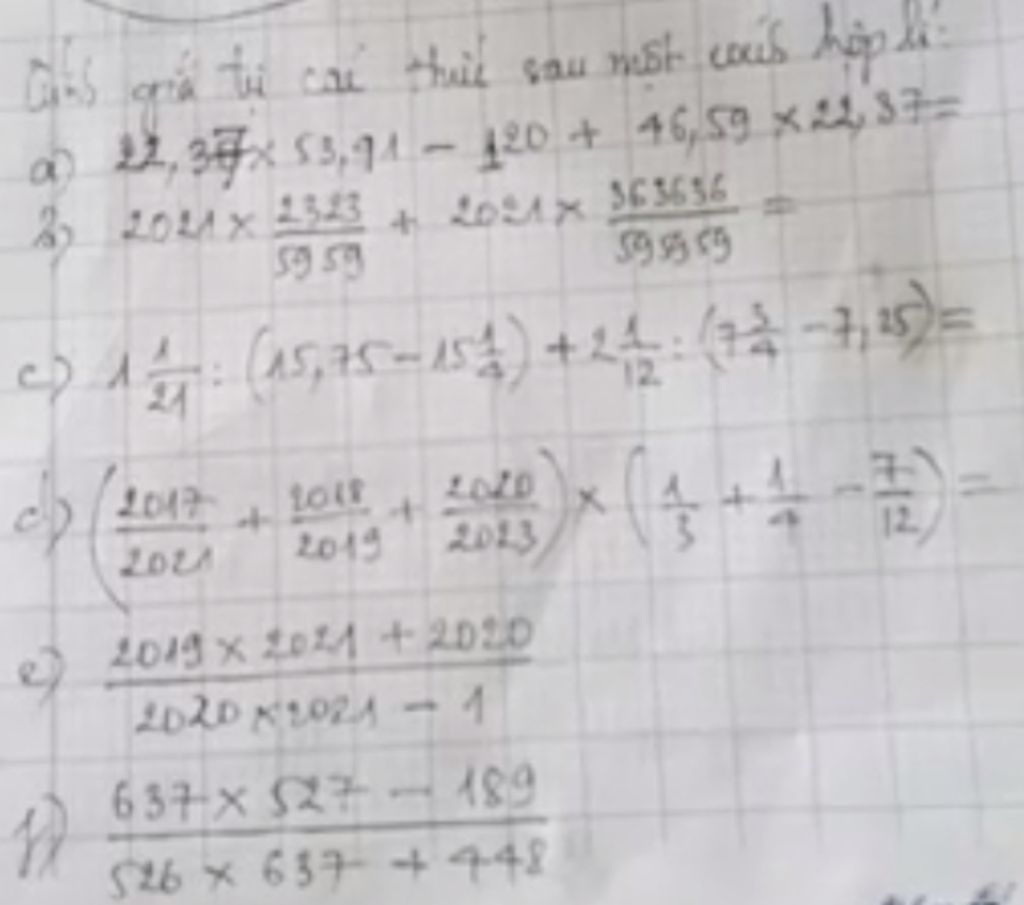 Tính giá trị các thức sau một cách hợp lí:
a) 22,37 × 53,91 - 120 + 46,59 × 22,37 =
b) 2021 × 2323/5959 + 2021 × 363636/595959 =
c) 1 1/21 : (15,75 - 15 1/4) + 2 1/12 : (7 3/4 - 7,25) =
d) (2017/2021 + 2018/2019 + 2020/2023) × (1/3 + 1/4 - 7/12) =
e) (2019 × 2021 + 2020)/(2020 × 2021 - 1)
f) (637 × 527 - 189)/(526 × 637 + 448)